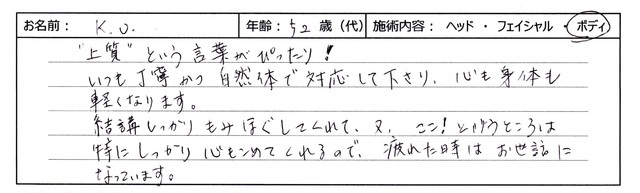 お名前： K.U. 年齢：52歳（代） 施術内容：ヘッド ・ フェイシャル ・ ボディ
"上質"という言葉がぴったり！
いつも丁寧かつ自然体で対応して下さり、心も身体も
軽くなります。
結講しっかりもみほぐしてくれて、又、ここ！というところは
特にしっかり心をこめてくれるので、疲れた時はお世話に
なっています。